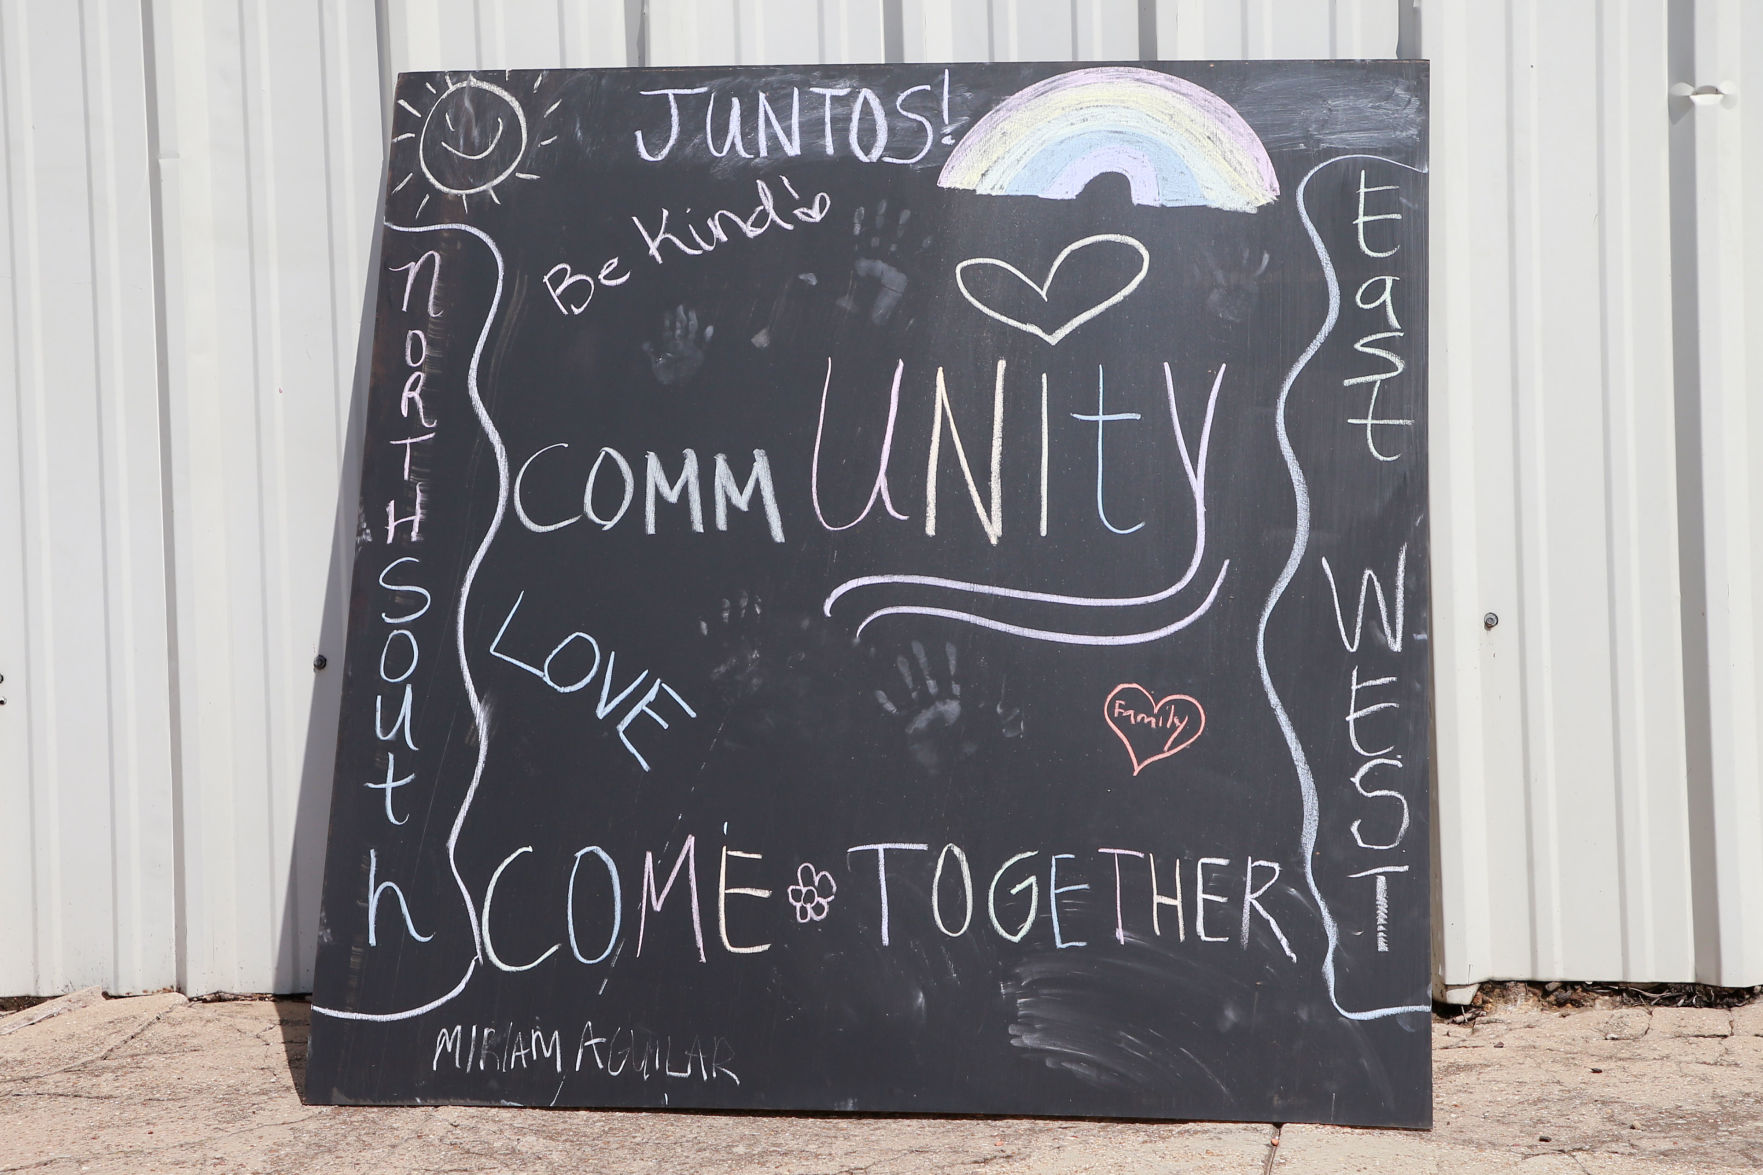 JUNTOS!
Be Kind!
NORTH
South
East
WEST
COMMUNITY
LOVE
Family
COME TOGETHER
MIRIAM AGUILAR